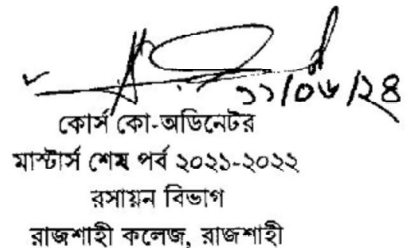 ১১/০৬/২৪
কোর্স কো-অডিনেটর
মাস্টার্স শেষ পর্ব ২০২১-২০২২
রসায়ন বিভাগ
রাজশাহী কলেজ, রাজশাহী